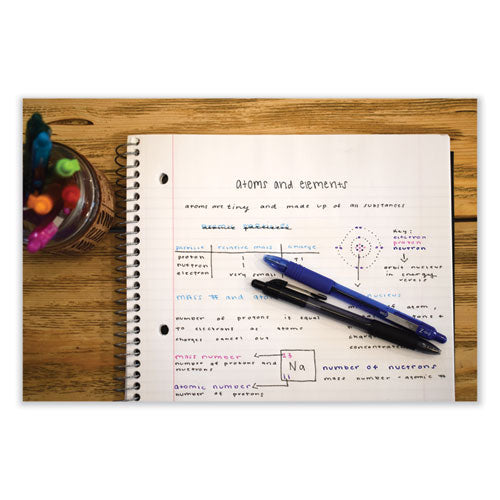 atoms and elements
atoms are tiny and made up of all substances
atomic particles
particle relative mass charge
proton 1 +1
neutron 1
electron very small
Key:
electron
proton
neutron
orbit nucleus
in energy
levels
mass # and nucleus
number of protons is equal
to electrons so atomic
charges cancel out
of atom,
concentrated
mass number 23
number of protons and
neutrons
Na
atomic number 11
number of protons
number of neutrons
mass number - atomic #